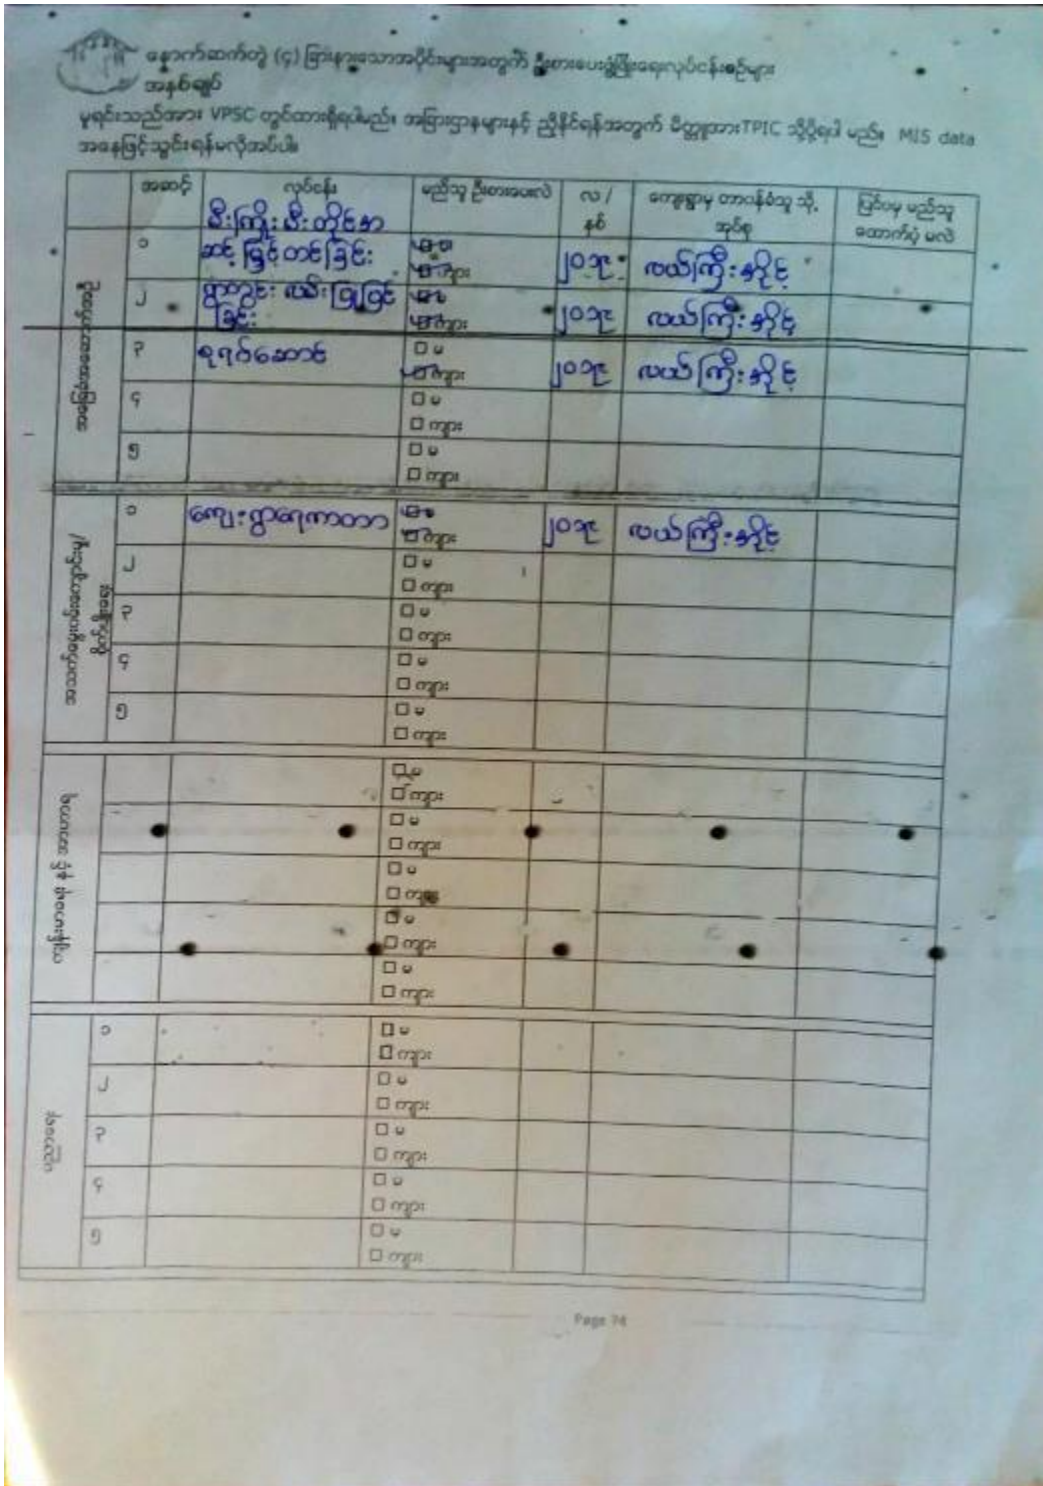 နောက်ဆက်တွဲ (၄) ခြားနားသောအပိုင်းများအတွက် ဦးစားပေးဖွံ့ဖြိုးရေးလုပ်ငန်းစဉ်များ
အနှစ်ချုပ်
မူရင်းသည်အား VPSC တွင်ထားရှိရပါမည်။ အခြားဌာနများနှင့် ညှိနှိုင်းရန်အတွက် မိတ္တူအား TPIC သို့ပို့ရပါ မည်။ MIS data
အနေဖြင့်သွင်းရန်မလိုအပ်ပါ။
အဆင့် လုပ်ငန်း မည်သူ ဦးစားပေးလဲ လ / နှစ် ကျေးရွာမှ တာဝန်ခံသူ သို့ အုပ်စု ပြင်ပမှ မည်သူ ထောက်ပံ့ မလဲ
မီးကြိုး မီးတိုင်အ
၁ ဆင့် မြှင့်တင်ခြင်း မ ကျား ၂၀၁၉ လယ်ကြီးအိုင့်
၂ ရွာတွင်း လမ်းပြုပြင် ခြင်း မ ကျား ၂၀၁၉ လယ်ကြီးအိုင့်
၃ စုရပ်ဆောင် မ ကျား ၂၀၁၉ လယ်ကြီးအိုင့်
၄ မ ကျား
၅ မ ကျား
၁ ကျေးရွာရေကာတာ မ ကျား ၂၀၁၉ လယ်ကြီးအိုင့်
၂ မ ကျား
၃ မ ကျား
၄ မ ကျား
၅ မ ကျား
မ ကျား
မ ကျား
မ ကျား
မ ကျား
မ ကျား
၁ မ ကျား
၂ မ ကျား
၃ မ ကျား
၄ မ ကျား
၅ မ ကျား
Page 74